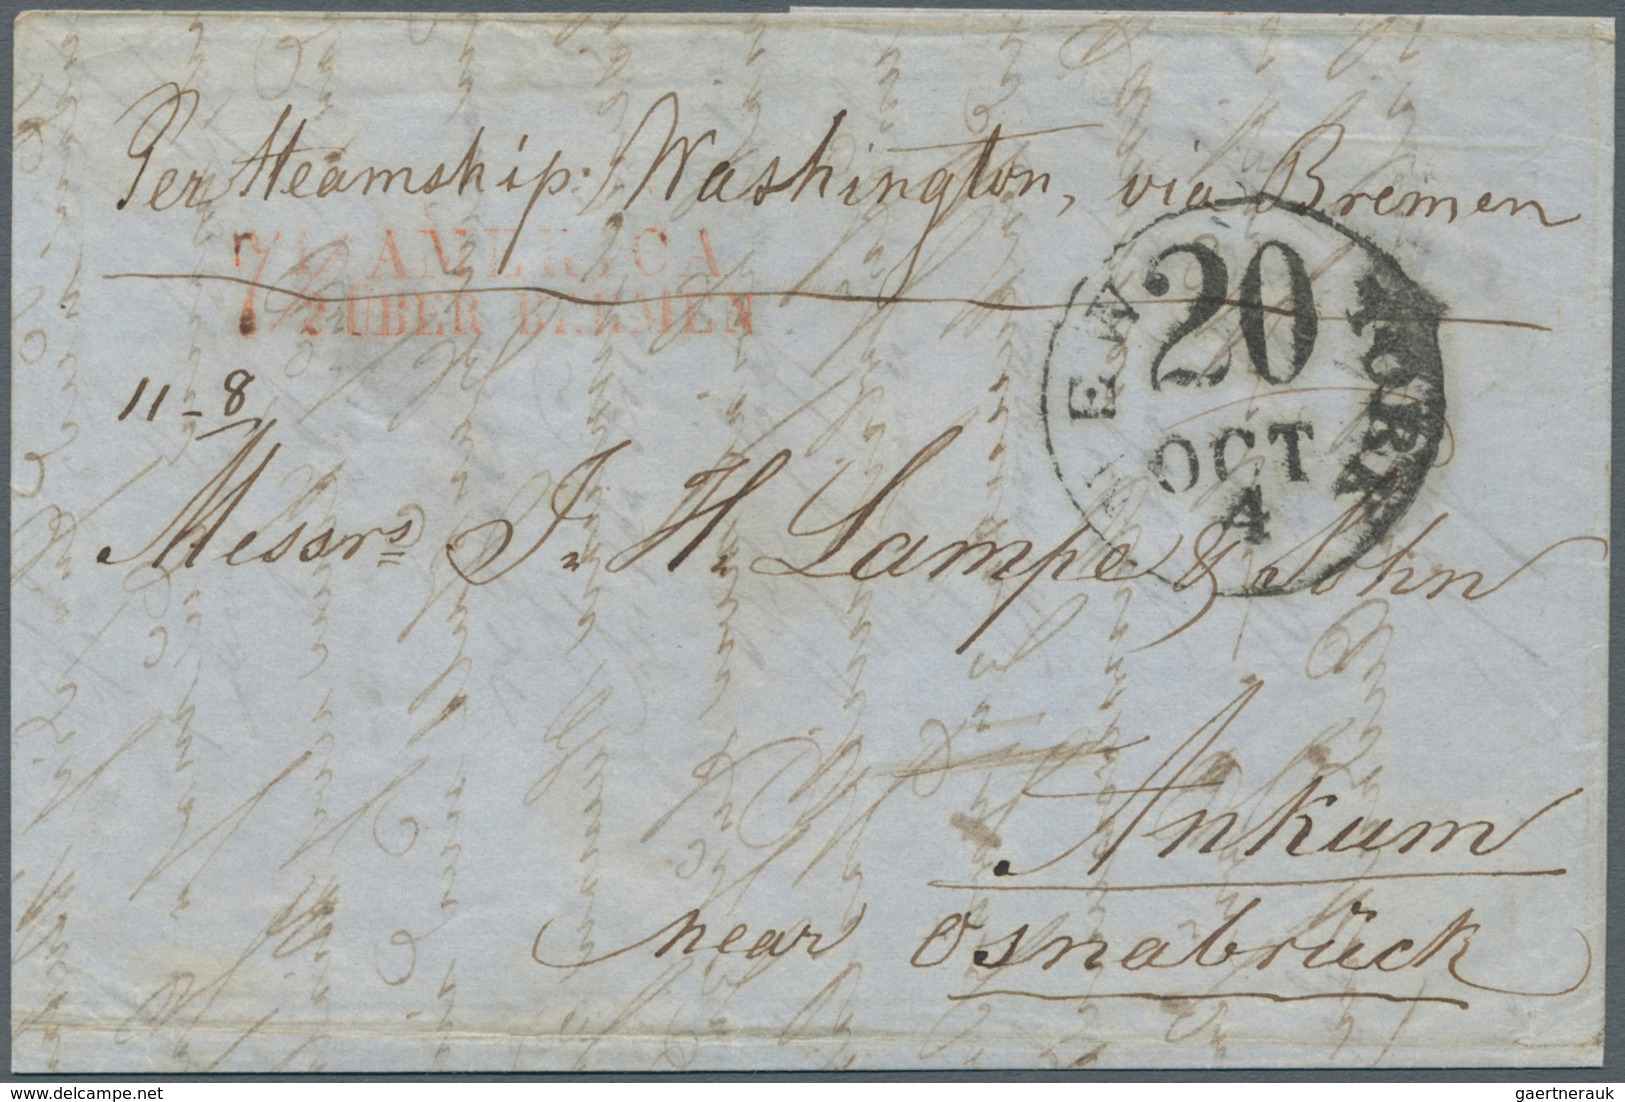 Per Steamship Washington, via Bremen
AMERICA
ÜBER BREMEN
NEW YORK
20
OCT
4
11 - 8
Messrs J. H. Lampe & Sohn
Ankum
near Osnabrück
gaertnerauk